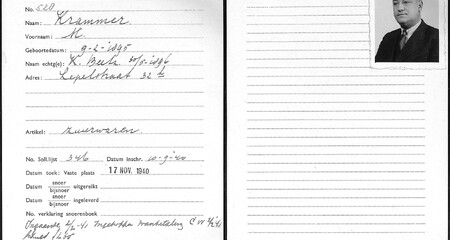 No. 528
Naam: Krammer.
Voornaam: M.
Geboortedatum: 9-2-1895
Naam echtg(e): K. Beek 30/5-1896
Adres: Lepelstraat 32
Artikel: zuurwaren.
No. Soll.lijst 346 Datum inschr. 10-9-'40
Datum toek.: Vaste plaats 17 NOV. 1940
Datum snoer bijsnoer uitgereikt
Datum snoer bijsnoer ingeleverd
No. verklaring snoerenboek
2/2-'41 Ingetrokken